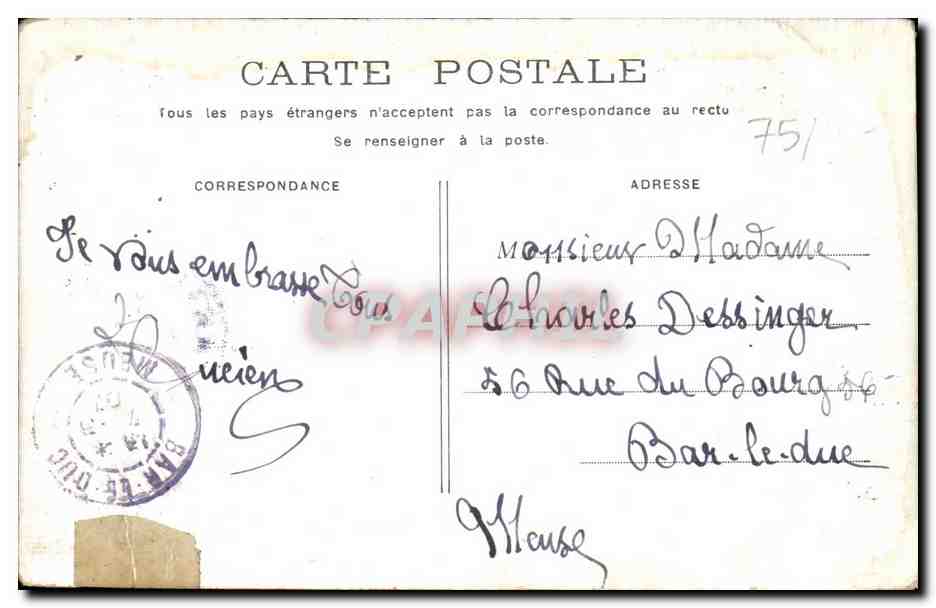 CARTE POSTALE
Tous les pays étrangers n'acceptent pas la correspondance au recto
Se renseigner à la poste.
75/
CORRESPONDANCE
Je vous embrasse Tous
Lucien
ADRESSE
Monsieur Madame
Charles Dessinger
56 Rue du Bourg 56
Bar-le-duc
Meuse
BAR-LE-DUC
MEUSE
CPARAMA